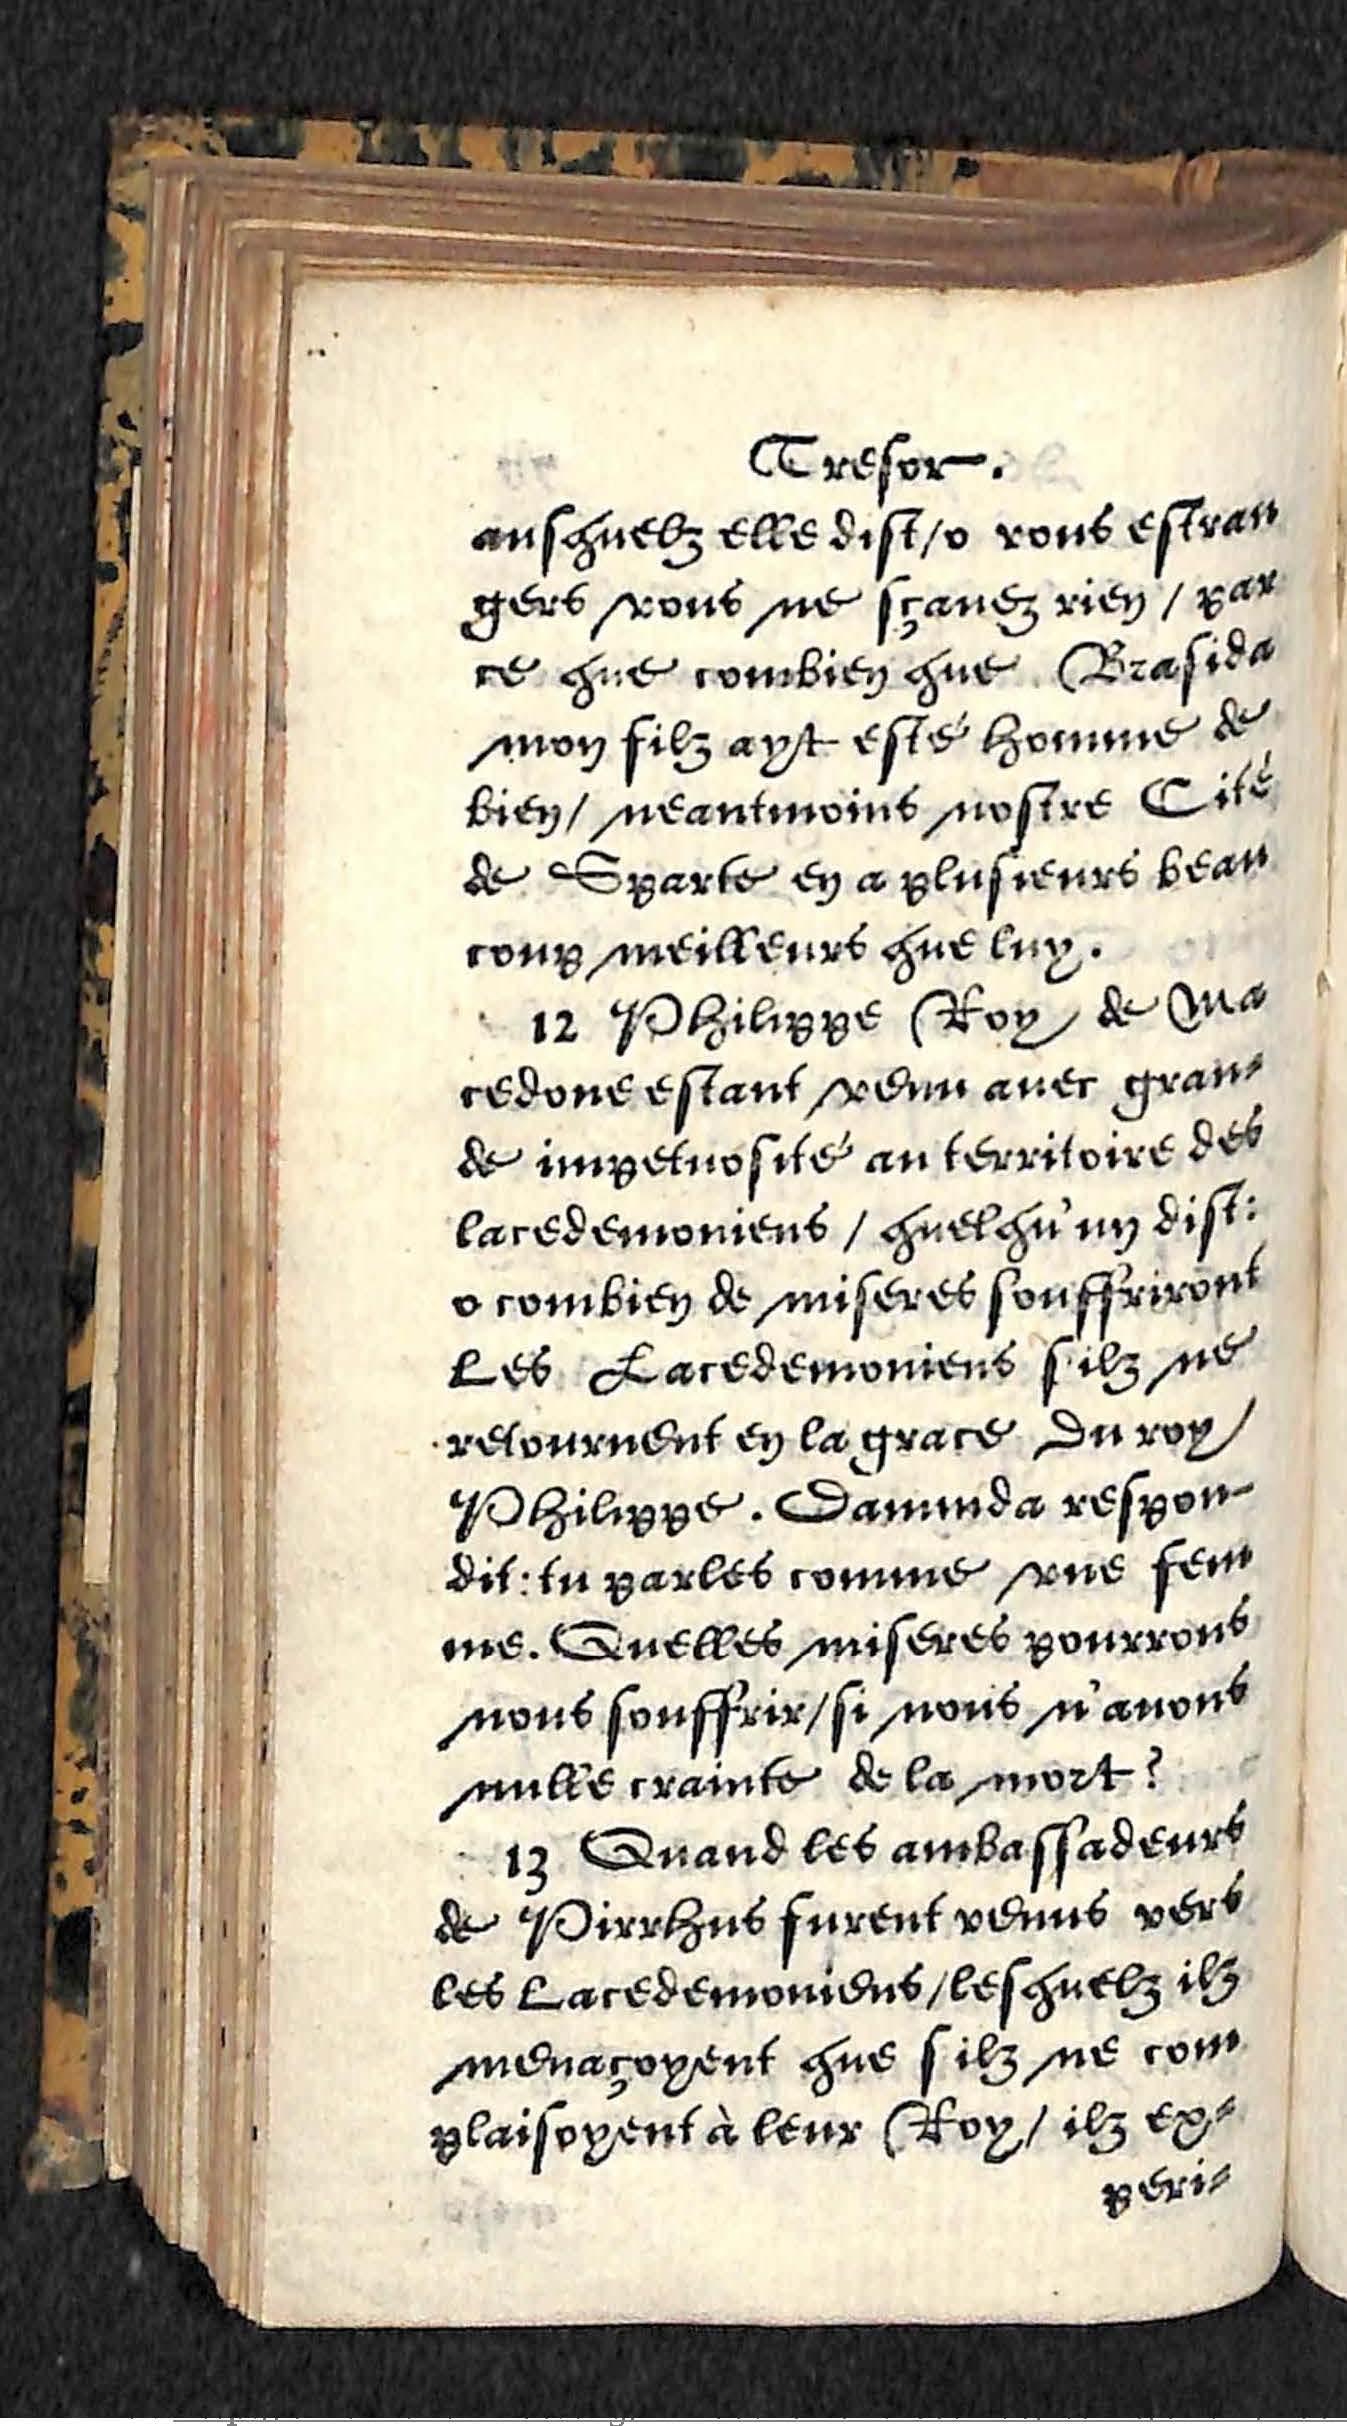 Tresor.
ausquelz elle dist/o vous estran
gers vous ne sçauez rien / par
ce que combien que Brasida
mon filz ayt esté homme de
bien/ neantmoins nostre Cité
de Sparte en a plusieurs beau
coup meilleurs que luy.
12 Philippe Roy de Ma
cedone estant venu auec gran-
de impetuosité au territoire des
lacedemoniens / quelqu'un dist:
o combien de miseres souffriront
Les Lacedemoniens s'ilz ne
retournent en la grace du roy
Philippe. Daminda respon-
dit: tu parles comme vne fem
me. Quelles miseres pourrons
nous souffrir/si nous n'auons
nulle crainte de la mort?
13 Quand les ambassadeurs
de Pirrhus furent venus vers
les Lacedemoniens/lesquelz ilz
menaçoyent que s'ilz ne com
plaisoyent à leur Roy/ ilz ex-
peri-